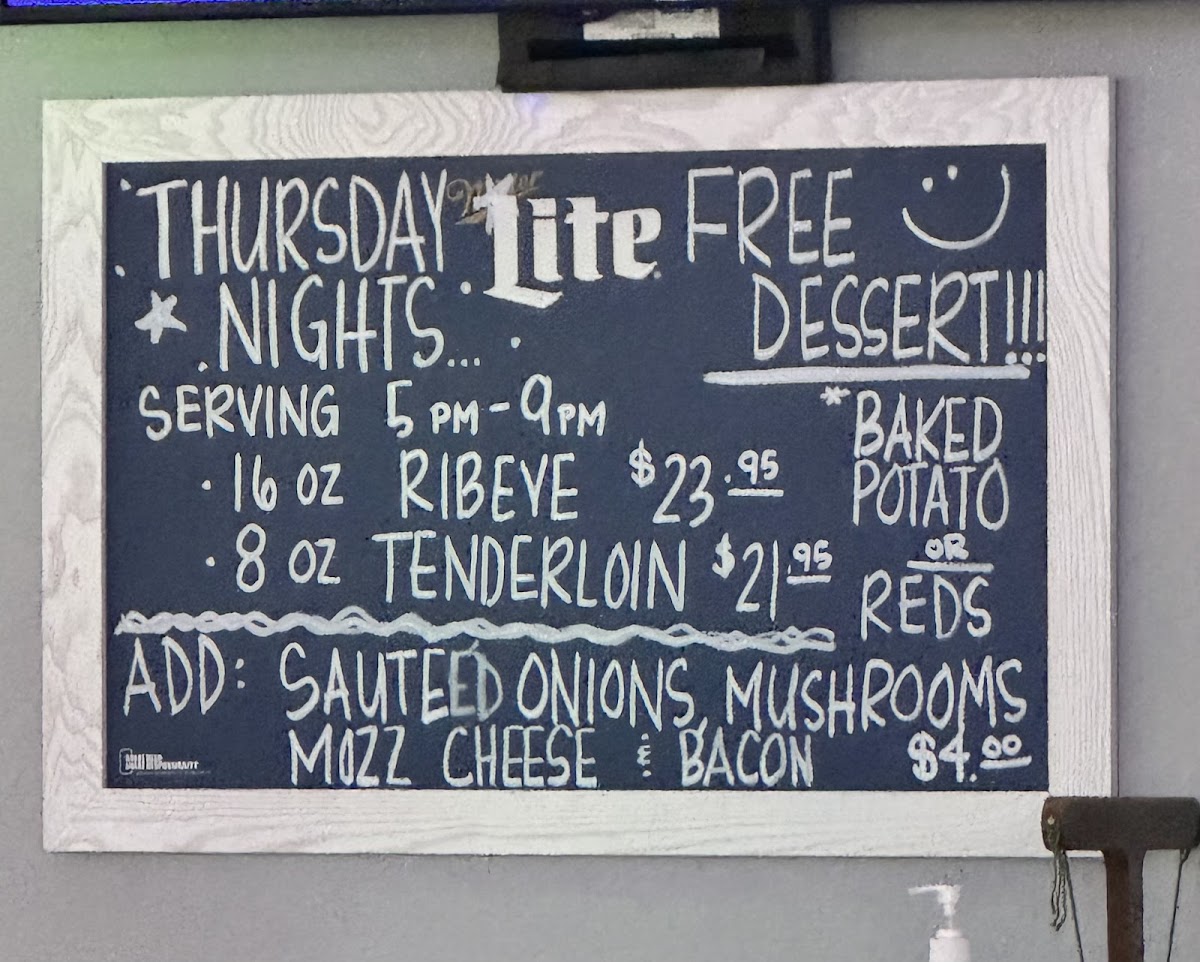 THURSDAY
NIGHTS...
Miller Lite
FREE
DESSERT!!!
SERVING 5PM-9PM
• 16 OZ RIBEYE $23.95
• 8 OZ TENDERLOIN $21.95
*BAKED
POTATO
OR
REDS
ADD: SAUTEED ONIONS, MUSHROOMS
MOZZ CHEESE & BACON $4.00